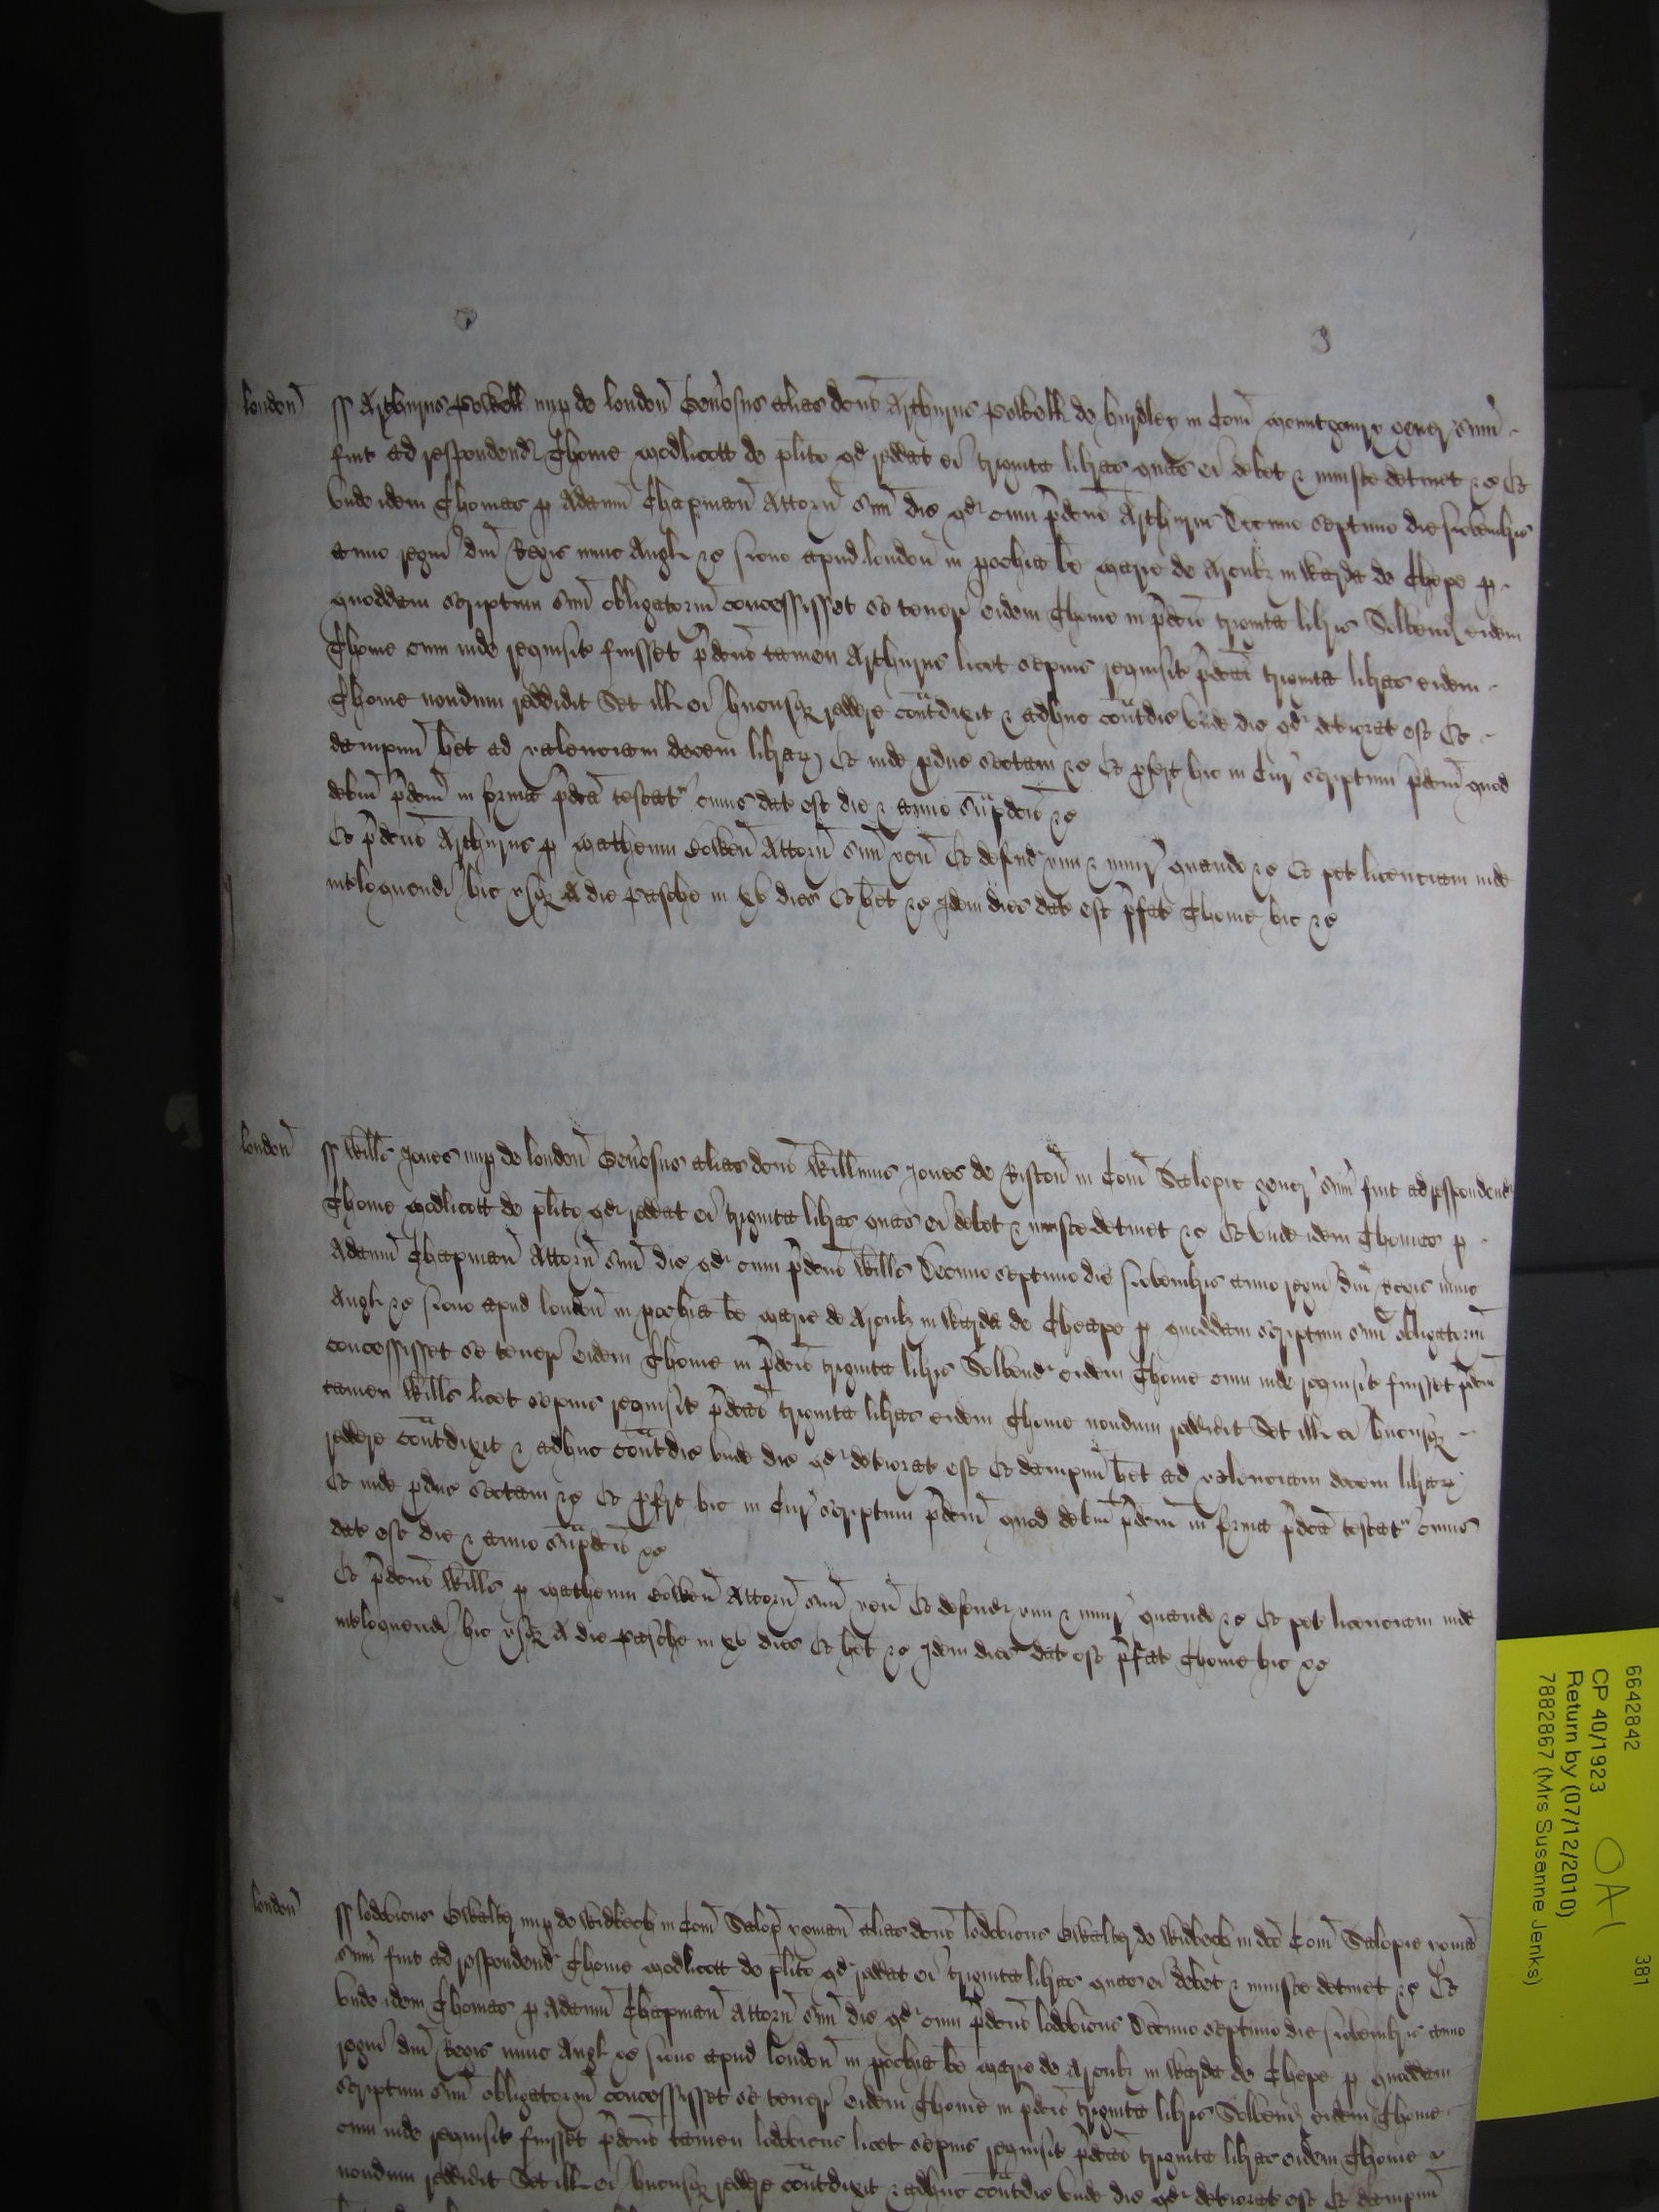 london̄ ss Arthurus Powell nup de london̄ Gen̄osus alias dc̄us Arthurus Powell de hurdley in Com̄ Mountgom̄y gen̄ sum̄
fuit ad respondend Thome Modlicott de pl̄ito qd reddat ei triginta libras quas ei debet & iniuste detinet &c Et
vnde idem Thomas p Adam̄ Chapman̄ Attorn̄ suū dic̄ qd cum p̄dc̄us Arthurus Decimo septimo die Novembris
anno regni dn̄i Regis nunc Angl &c sc̄do apud london̄ in pochia b̄e Marie de Arcub in Warda de Chepe p
quoddam scriptum suū obligatoriū concessisset se teneri eidem Thome in p̄dc̄is triginta libris Solvend eidem
Thome cum inde requisit fuisset p̄dc̄us tamen Arthurus licet sepius requisit p̄dc̄as triginta libras eidem
Thome nondum reddidit Set ill ei hucusq redde cont̄dixit & adhuc cont̄dic̄ vnde dic̄ qd deteriorat est Et
dampnū h̄et ad valenciam decem librar Et inde pduc̄ sectam &c Et pfert hic in Cur scriptum p̄dc̄m quod
debm̄ p̄dc̄m in forma p̄dc̄a testat cuius dat est die & anno sup̄dc̄is &c
Et p̄dc̄us Arthurus p Matheum Attorn̄ suū ven̄ Et defend vim & iniur quando &c Et pet licenciam inde
int̄loquendi hic vsq A die Pasche in xv dies Et h̄et &c Idem dies dat est p̄fat Thome hic &c
london̄ ss Will̄s Jones nup de london̄ Gen̄osus alias dc̄us Will̄mus Jones de Riston̄ in Com̄ Salopie gen̄ sum̄ fuit ad respondend
Thome Modlicott de pl̄ito qd reddat ei triginta libras quas ei debet & iniuste detinet &c Et vnde idem Thomas p
Adam̄ Chapman̄ Attorn̄ suū dic̄ qd cum p̄dc̄us Will̄s Decimo septimo die Novembris anno regni dn̄i Regis nunc
Angl &c sc̄do apud london̄ in pochia b̄e Marie de Arcub in Warda de Cheape p quoddam scriptum suū obligatoriū
concessisset se teneri eidem Thome in p̄dc̄is triginta libris Solvend eidem Thome cum inde requisit fuisset p̄dc̄us
tamen Will̄s licet sepius requisit p̄dc̄as triginta libras eidem Thome nondum reddidit Set ill ei hucusq
redde cont̄dixit & adhuc cont̄dic̄ vnde dic̄ qd deteriorat est Et dampnū h̄et ad valenciam decem librar
Et inde pduc̄ sectam &c Et pfert hic in Cur scriptum p̄dc̄m quod debm̄ p̄dc̄m in forma p̄dc̄a testat cuius
dat est die & anno sup̄dc̄is &c
Et p̄dc̄us Will̄s p Matheum Attorn̄ suū ven̄ Et defend vim & iniur quando &c Et pet licenciam inde
int̄loquendi hic vsq A die Pasche in xv dies Et h̄et &c Idem dies dat est p̄fat Thome hic &c
london̄ ss lodovicus nup de in Com̄ Salop yoman̄ alias dc̄us lodovicus de in dc̄o Com̄ Salopie yomā
sum̄ fuit ad respondend Thome Modlicott de pl̄ito qd reddat ei triginta libras quas ei debet & iniuste detinet &c Et
vnde idem Thomas p Adam̄ Chapman̄ Attorn̄ suū dic̄ qd cum p̄dc̄us lodovicus Decimo septimo die Novembris anno
regni dn̄i Regis nunc Angl &c sc̄do apud london̄ in pochia b̄e Marie de Arcub in Warda de Chepe p quoddam
scriptum suū obligatoriū concessisset se teneri eidem Thome in p̄dc̄is triginta libris Solvend eidem Thome
cum inde requisit fuisset p̄dc̄us tamen lodovicus licet sepius requisit p̄dc̄as triginta libras eidem Thome
nondum reddidit Set ill ei hucusq redde cont̄dixit & adhuc cont̄dic̄ vnde dic̄ qd deteriorat est Et dampnū
6642842 381
CP 40/1923 OA1
Return by (07/12/2010)
7882867 (Mrs Susanne Jenks)